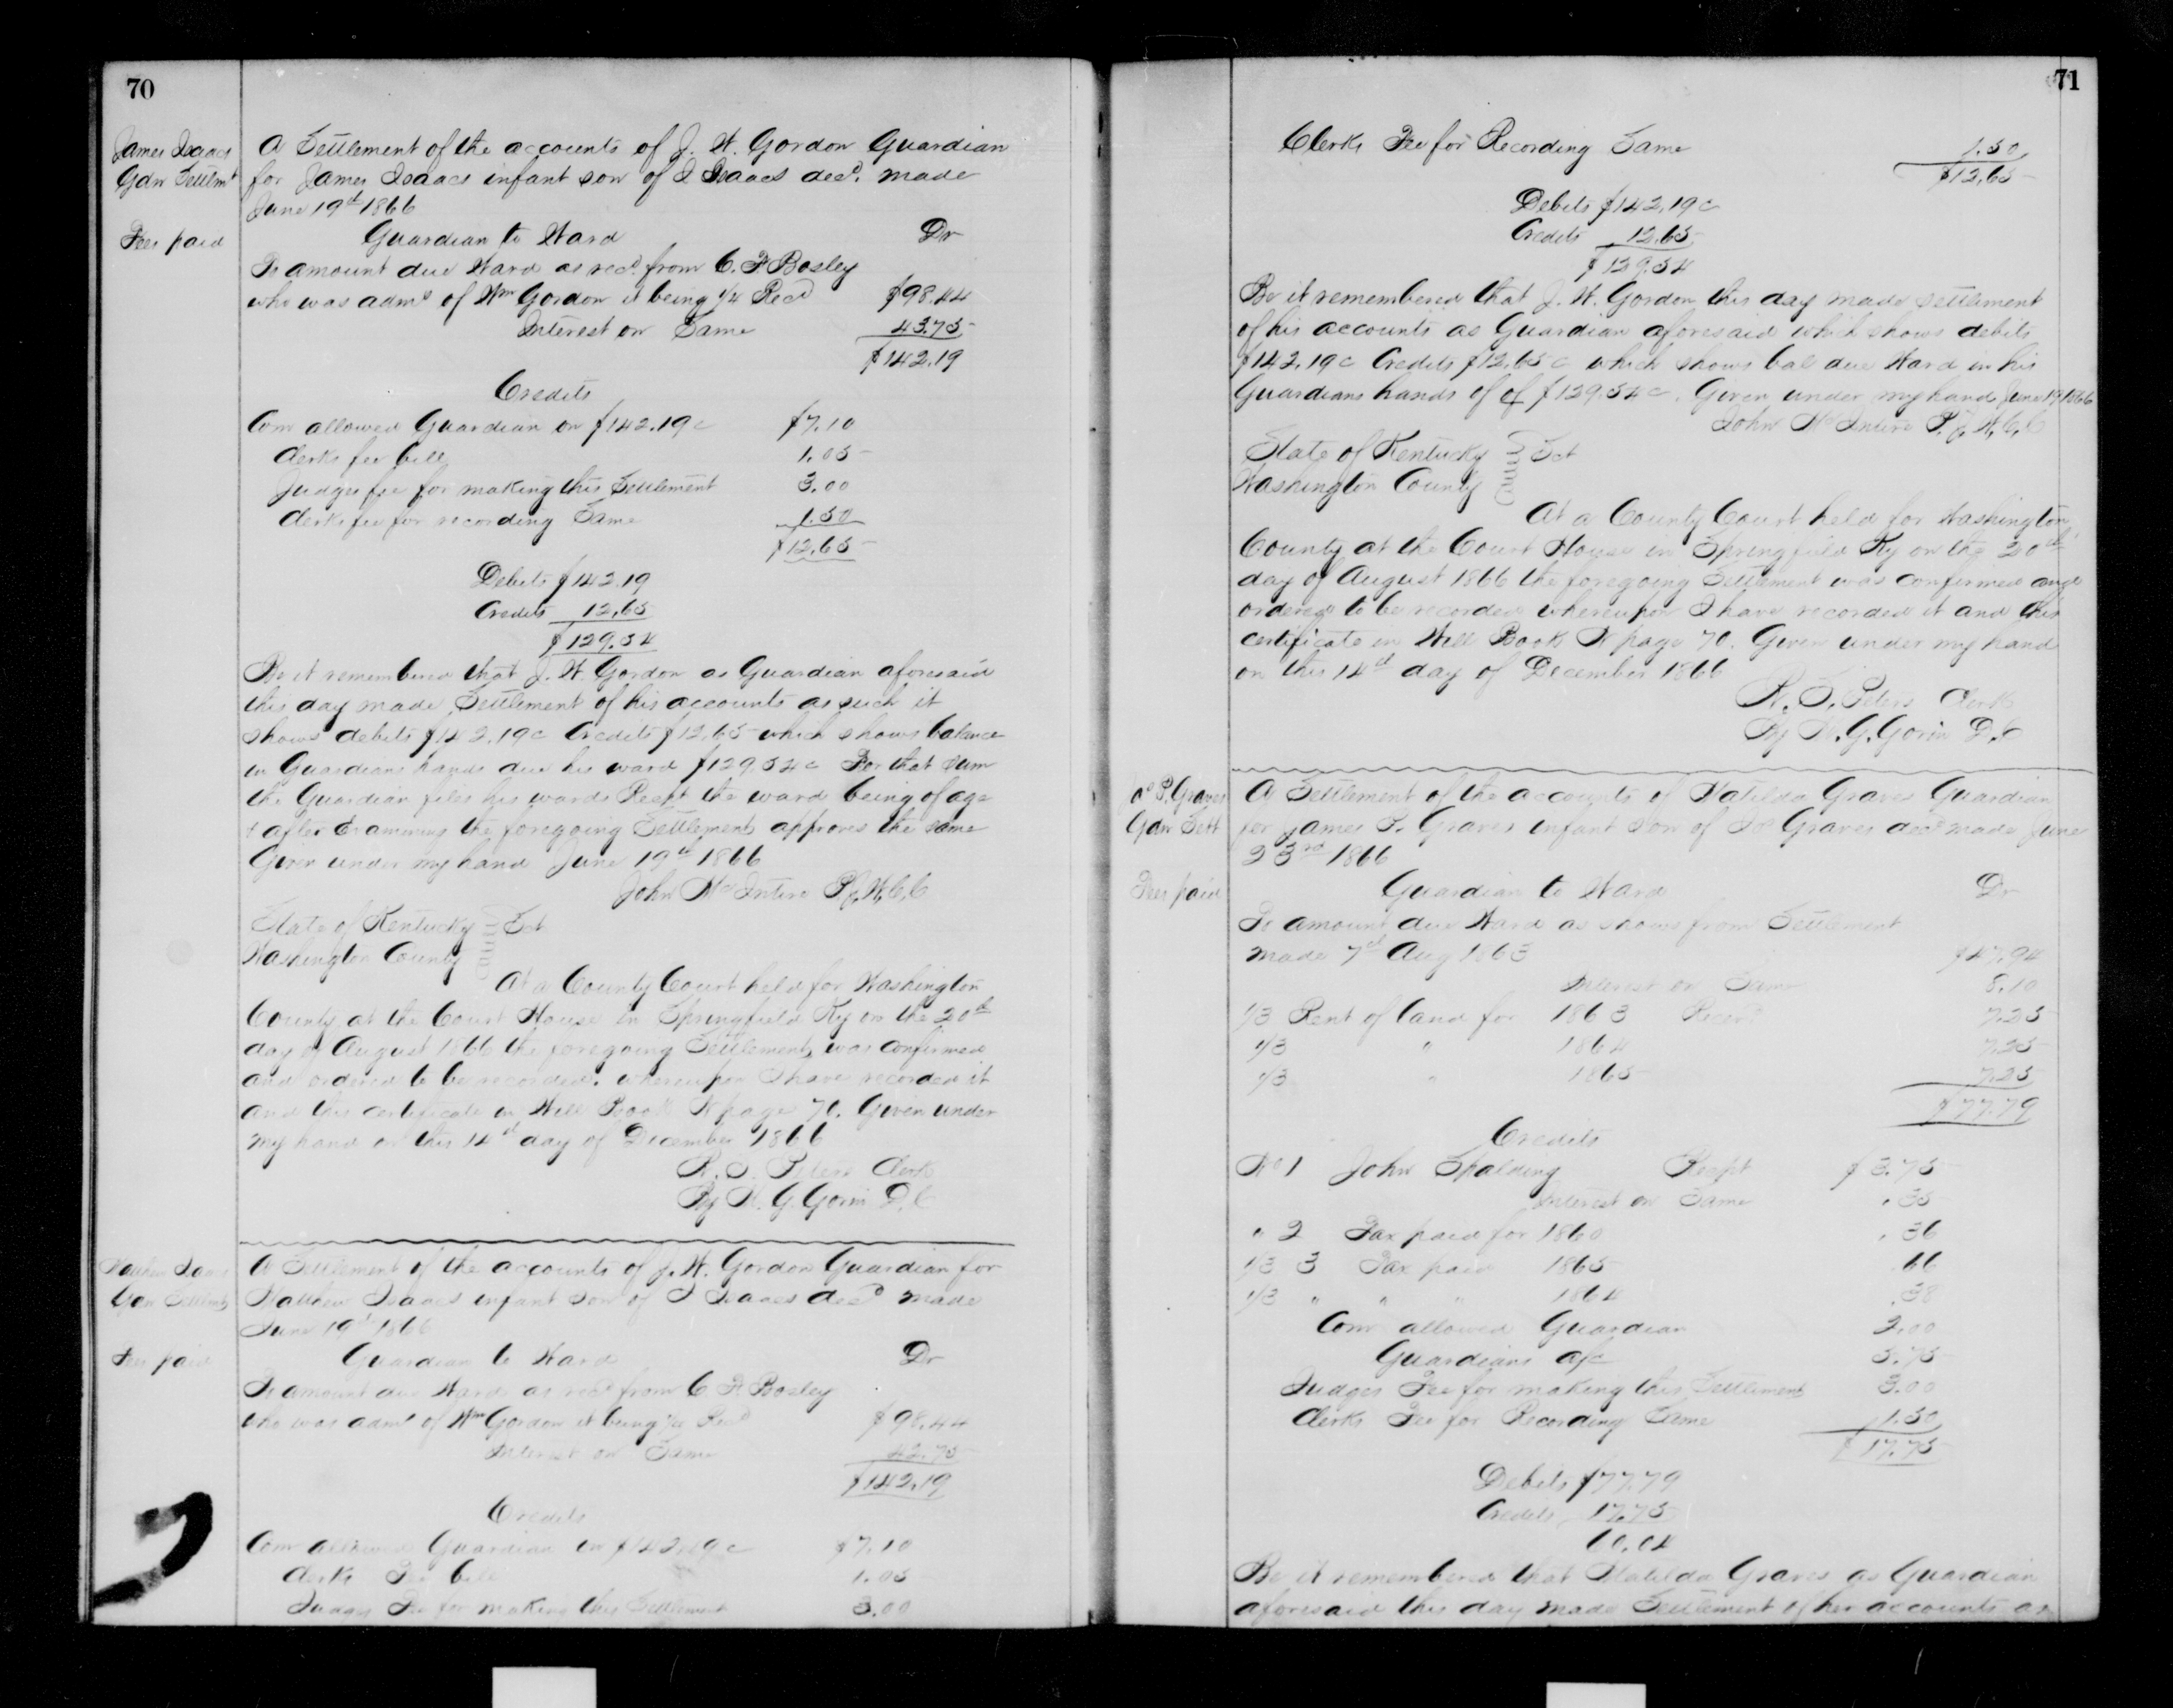 70
James Isaacs
Gdn Settlmt
Fees paid
A Settlement of the accounts of J. W. Gordon Guardian
for James Isaacs infant son of I Isaacs decd. made
June 19th 1866
Guardian to Ward Dr
To amount due Ward as recd. from C. F. Bosley
who was admr of Wm Gordon it being 1/4 Recd $98.44
Interest on Same 43.75
$142.19
Credits
Com allowed Guardian on $142.19c $7.10
Clerks fee bill 1.05
Judges fee for making this Settlement 3.00
Clerks fee for recording Same 1.50
$12.65
Debits $142.19
Credits 12.65
$129.54
Be it remembered that J. W. Gordon as Guardian aforesaid
this day made Settlement of his accounts as such it
shows debits $142.19c Credits $12.65 which shows balance
in Guardians hands due his ward $129.54c For that sum
the Guardian files his wards Recpt the ward being of age
& after Examining the foregoing Settlement approves the same
Given under my hand June 19th 1866
John McIntire P.J.W.C.C
State of Kentucky Sct
Washington County
At a County Court held for Washington
County at the Court House in Springfield Ky on the 20th
day of August 1866 the foregoing Settlement was confirmed
and ordered to be recorded. whereupon I have recorded it
and this certificate in Will Book N page 70. Given under
my hand on this 14th day of December 1866
Peters Clerk
By W. G. Gorin D.C
Isaacs
Gdn Settlmt
Fees paid
A Settlement of the accounts of J. W. Gordon Guardian for
Matthew Isaacs infant son of I Isaacs decd made
June 19th 1866
Guardian to Ward Dr
To amount due Ward as recd from C F Bosley
who was admr of Wm Gordon it being 1/4 Recd $98.44
Interest on Same 43.75
$142.19
Credits
Com allowed Guardian on $142.19c $7.10
Clerks Fee bill 1.05
Judges Fee for making this Settlement 3.00
71
Clerks Fee for Recording Same 1.50
$12.65
Debits $142.19c
Credits 12.65
$129.54
Be it remembered that J. W. Gordon this day made settlement
of his accounts as Guardian aforesaid which shows debits
$142.19c Credits $12.65c which shows bal due Ward in his
Guardians hands of of $129.54c. Given under my hand June 19 1866
John McIntire P.J.W.C.C
State of Kentucky Sct
Washington County
At a County Court held for Washington
County at the Court House in Springfield Ky on the 20th
day of August 1866 the foregoing Settlement was confirmed and
ordered to be recorded whereupon I have recorded it and this
certificate in Will Book N page 70. Given under my hand
on this 14th day of December 1866
Peters Clerk
By W. G. Gorin D.C
Jas P. Graves
Gdn Sett
Fees paid
A Settlement of the accounts of Matilda Graves Guardian
for James P. Graves infant son of Graves decd made June
23rd 1866
Guardian to Ward Dr
To amount due Ward as shows from Settlement
made 7th Aug 1863 $47.94
Interest on Same 8.10
1/3 Rent of land for 1863 7.25
1/3 " 1864 7.25
1/3 " 1865 7.25
$77.79
Credits
No 1 John Spalding Recpt $3.75
Interest on Same .35
" 2 Tax paid for 1860 .36
1/3 3 Tax paid 1865 .66
1/3 " " " 1864 .38
Com allowed Guardian
Guardians a/c
Judges Fee for making this Settlement 3.00
Clerks Fee for Recording Same 1.50
$17.75
Debits $77.79
Credits 17.75
60.04
Be it remembered that Matilda Graves as Guardian
aforesaid this day made Settlement of her accounts as